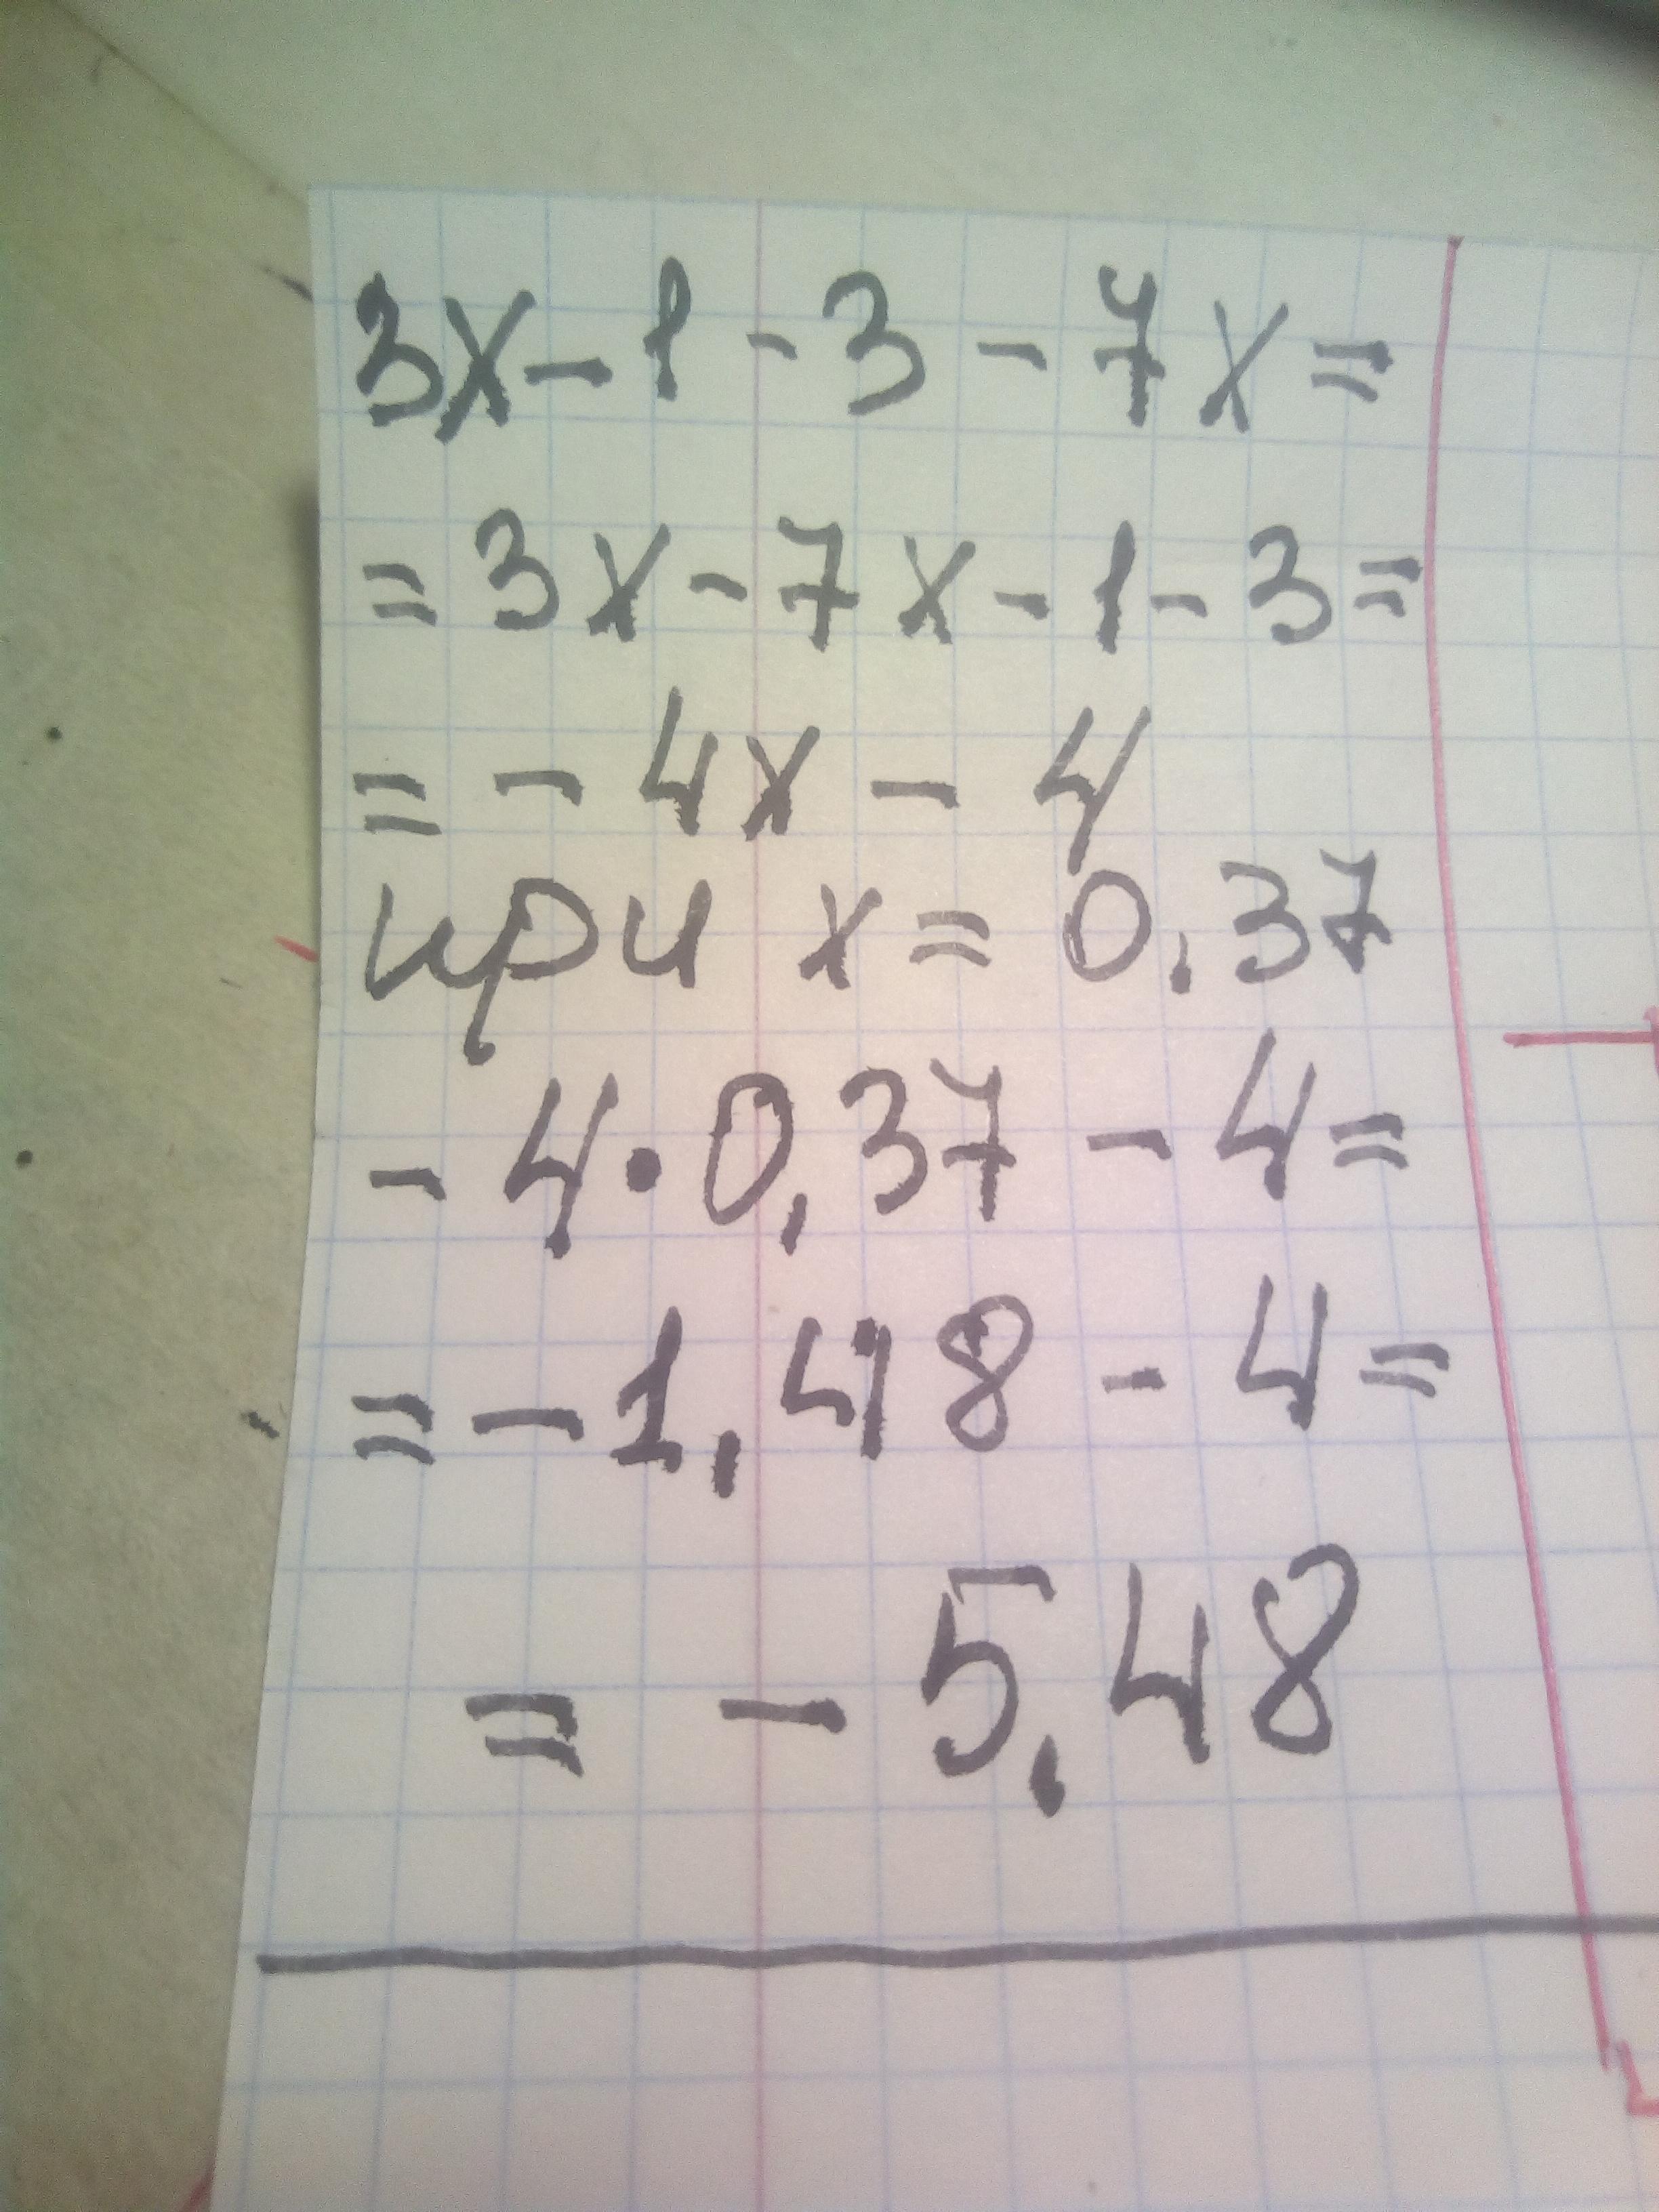 3x-1-3-7x=
=3x-7x-1-3=
=-4x-4
при x=0,37
-4·0,37-4=
=-1,48-4=
=-5,48